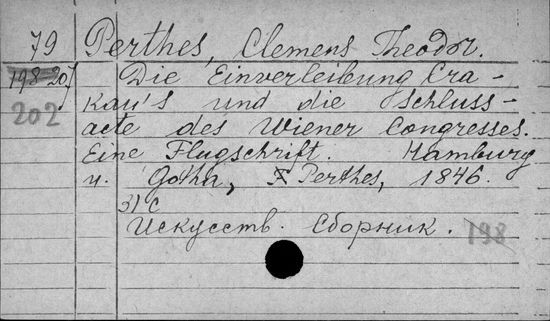 79 Perthes, Clemens Theodor.
198-207 Die Einverleibung Cra-
202 kau's und die Schluss-
acte des Wiener Congresses.
Eine Flugschrift. Hamburg
u. Gotha, F Perthes, 1846.
3) С
Искусств. Сборник. 198